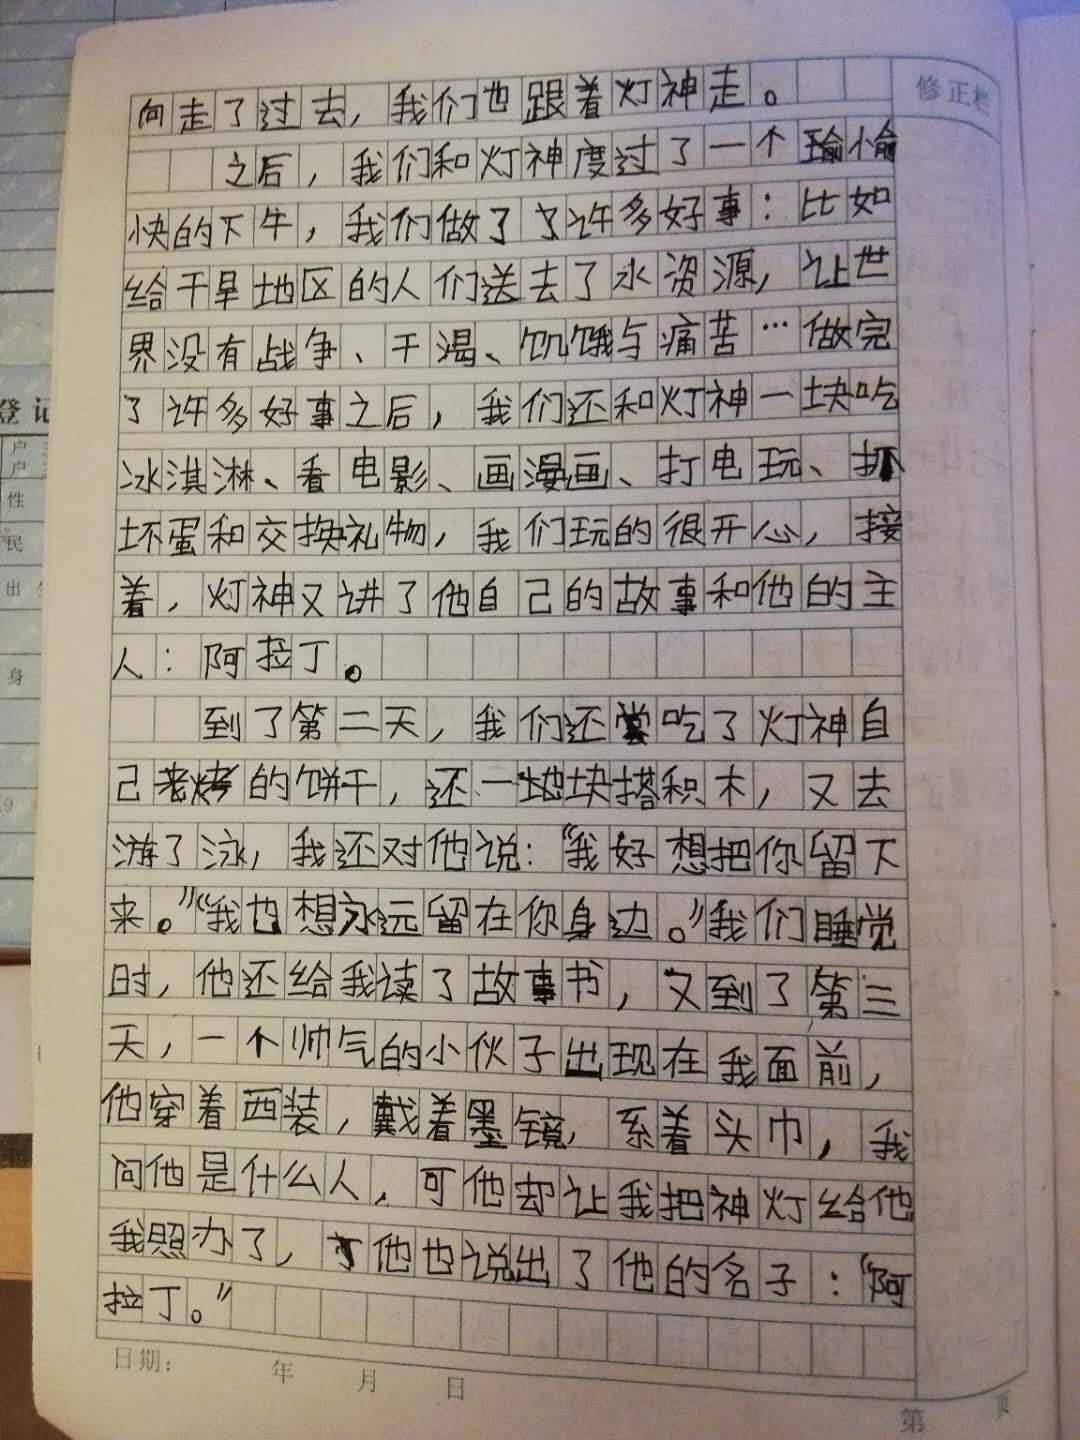 修正栏
向走了过去，我们也跟着灯神走。
之后，我们和灯神度过了一个愉
快的下午，我们做了许多好事：比如
给干旱地区的人们送去了水资源，让世
界没有战争、干渴、饥饿与痛苦…做完
了许多好事之后，我们还和灯神一块吃
冰淇淋、看电影、画漫画、打电玩、抓
坏蛋和交换礼物，我们玩的很开心，接
着，灯神又讲了他自己的故事和他的主
人：阿拉丁。
到了第二天，我们还尝吃了灯神自
己烤的饼干，还一块搭积木，又去
游了泳，我还对他说：“我好想把你留下
来。”“我也想永远留在你身边。”我们睡觉
时，他还给我读了故事书，又到了第三
天，一个帅气的小伙子出现在我面前，
他穿着西装，戴着墨镜，系着头巾，我
问他是什么人，可他却让我把神灯给他
我照办了，他也说出了他的名子：“阿
拉丁。”
日期： 年 月 日
第 页
登记
户
户
性
民
出生
身